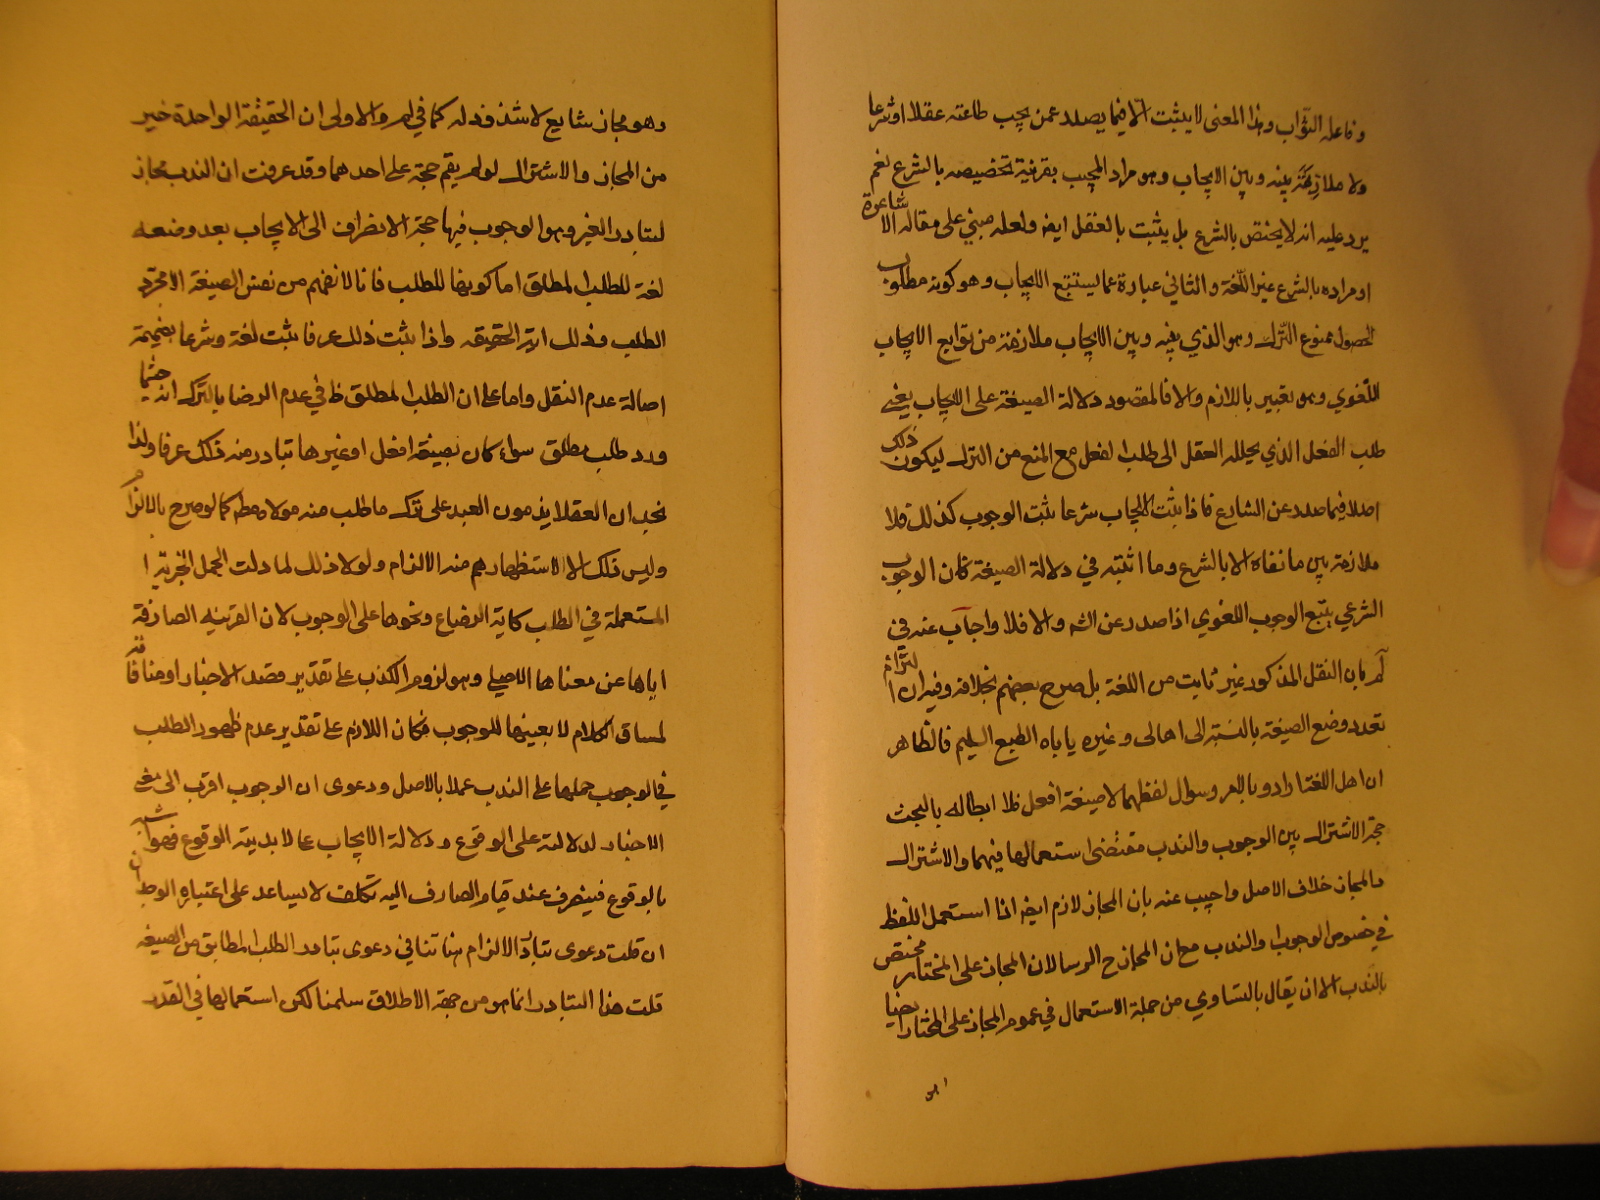 وفاعله الثواب وهذا المعنى لا يثبت الا فيما يصدر عمن يجب طاعته عقلا او شرعا
ولا ملازمة بينه وبين الايجاب وهو مراد المجيب بقرينة تخصيصه بالشرع نعم
يرد عليه انه لا يختص بالشرع بل يثبت بالعقل ايض ولعله مبني على مقاله الاشاعرة
او مراده بالشرع غير اللغة والثاني عبارة عما يستتبع الايجاب وهو كونه مطلوب
الحصول ممنوع الترك وهو الذي بينه وبين الايجاب ملازمة من توابع الايجاب
اللغوي وهو تعبير باللازم والا فالمقصود دلالة الصيغة على الايجاب يعني
طلب الفعل الذي يحلله العقل الى طلب الفعل مع المنع من الترك ليكون ذلك
اصلا فيما صدر عن الشارع فاذا ثبت الايجاب شرعا ثبت الوجوب كذلك فلا
ملازمة بين ما نفاه الا بالشرع وما اثبته في دلالة الصيغة فان الوجوب
الشرعي يتبع الوجوب اللغوي اذا صدر عن الشه والا فلا واجاب عنه في
بان النقل المذكور غير ثابت من اللغة بل صرح بعضهم بخلافه وفيه ان التزام
تعدد وضع الصيغة بالنسبة الى اهالى وغيره ياباه الطبع السليم فالظاهر
ان اهل اللغة ارادوا بالامر وسوال لفظهما لا صيغة افعل فلا ابطاله بالبحث
حجة الاشتراك بين الوجوب والندب مقتضى استعمالها فيهما والاشتراك
والمجاز خلاف الاصل واجيب عنه بان المجاز لازم ايض اذا استعمل اللفظ
في خصوص الوجوب والندب مع ان المجاز ح لان المجاز على المختار مختص
بالندب الا ان يقال بالتساوي من جملة الاستعمال في عموم المجاز على المختار
وهو مجاز شايع لا شذوذ له كما في والاولى ان الحقيقة الواحدة خير
من المجاز والاشتراك لو لم يقم حجة على احدهما وقد عرفت ان الندب مجاز
لتبادر الغير وهو الوجوب فيها حجة الانصراف الى الايجاب بعد وضعه
لغة للطلب المطلق اما كونها للطلب فانا لا نفهم من نفس الصيغة الا مجرد
الطلب وذلك اية الحقيقه واذا ثبت ذلك عرفا ثبت لغة وشرعا بضميمة
اصالة عدم النقل واما على ان الطلب المطلق ظ في عدم الرضا بالترك انه حيثما
ورد طلب مطلق سواء كان بصيغة افعل او غيرها تبادر منه ذلك عرفا ولذا
نجد ان العقلا يذمون العبد على ترك ما طلب منه مولاه مطه كما لو صرح بالالزام
وليس ذلك الا لاستظهارهم منه الالزام ولولا ذلك لما دلت الجمل الخبرية
المستعملة في الطلب كاية الرضاع ونحوها على الوجوب لان القرينه الصارفة
اياها عن معناها الاصلي وهو لزوم الكذب على تقدير قصد الاخبار او منافاته
لمساق الكلام لا بعينها للوجوب فكان اللازم على تقدير عدم ظهور الطلب
في الوجوب حملها على الندب عملا بالاصل ودعوى ان الوجوب اقرب الى معنى
الاخبار لدلالته على الوقوع ودلالة الايجاب على لابدية الوقوع فهو اشبه
بالوقوع فينصرف عند قيام الصارف اليه تكلف لا يساعد على اعتباره الوجدان
ان قلت دعوى تبادر الالزام هنا تنافي دعوى تبادر الطلب المطابق من الصيغه
قلت هذا التبادر انما هو من جهة الاطلاق سلمنا لكن استعمالها في القدر